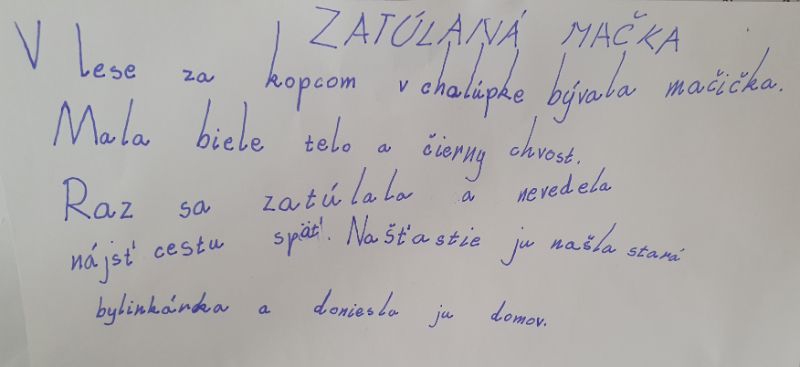 ZATÚLANÁ MAČKA
V lese za kopcom v chalúpke bývala mačička.
Mala biele telo a čierny chvost.
Raz sa zatúlala a nevedela
nájsť cestu späť. Našťastie ju našla stará
bylinkárka a doniesla ju domov.